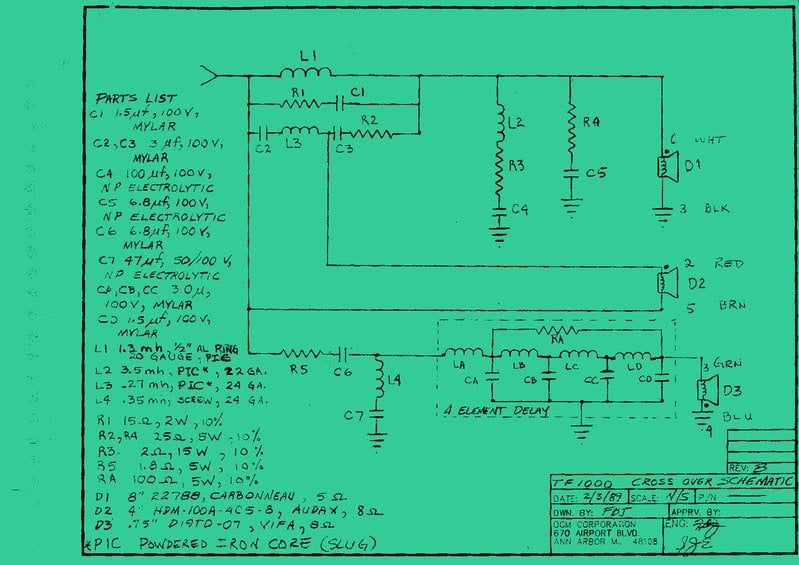 PARTS LIST
C1 1.5µf, 100V,
MYLAR
C2, C3 3 µf, 100V,
MYLAR
C4 100µf, 100V,
NP ELECTROLYTIC
C5 6.8µf, 100V,
NP ELECTROLYTIC
C6 6.8µf, 100V,
MYLAR
C7 47µf, 50/100 V,
NP ELECTROLYTIC
CA, CB, CC 3.0µ,
100V, MYLAR
CD 1.5µf, 100V,
MYLAR
L1 1.3mh, 1/2" AL RING
20 GAUGE, PIC
L2 3.5mh, PIC*, 22 GA.
L3 .27mh, PIC*, 24 GA.
L4 .35mh, SCREW, 24 GA.
R1 15Ω, 2W, 10%
R2, R4 25Ω, 5W, 10%
R3 2Ω, 15W, 10%
R5 1.8Ω, 5W, 10%
RA 100Ω, 5W, 10%
D1 8" 22788, CARBONNEAU, 5Ω
D2 4" HDM-100A-4C5-8, AUDAX, 8Ω
D3 .75" D19TD-07, VIFA, 8Ω
*PIC POWDERED IRON CORE (SLUG)
L1
R1
C1
R2
C2
L3
C3
L2
R3
C4
R4
C5
6 WHT
D1
3 BLK
2 RED
D2
5 BRN
R5
C6
L4
C7
RA
LA
LB
LC
LD
CA
CB
CC
CD
4 ELEMENT DELAY
3 GRN
D3
BLU
4
REV: B
TF1000 CROSS OVER SCHEMATIC
DATE: 2/3/89
SCALE: N/S
P/N
DWN. BY: FDJ
APPRV. BY:
OCM CORPORATION
670 AIRPORT BLVD.
ANN ARBOR MI. 48108
ENG: